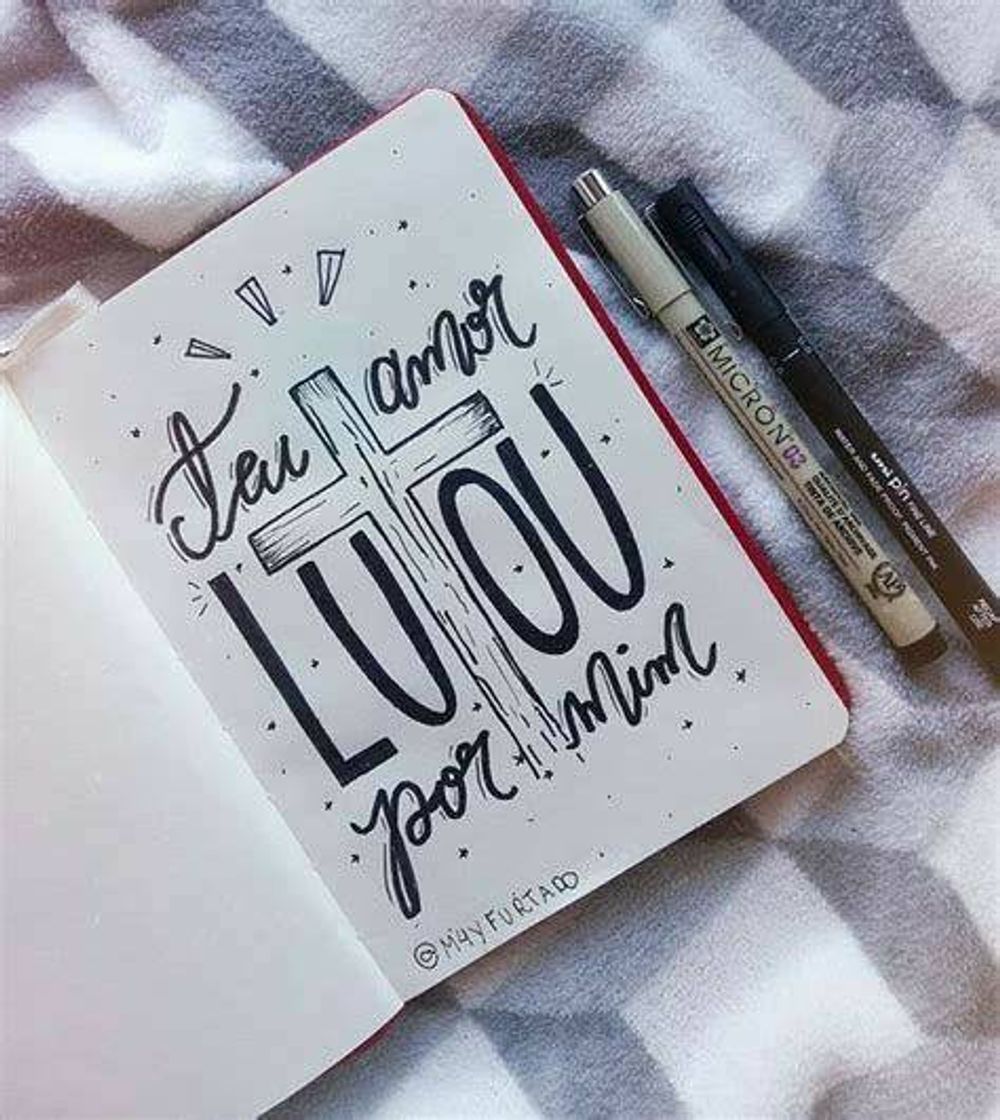 Teu amor
LUTOU
por mim
@MAYFURTADO
MICRON 02
uni PIN FINE LINE